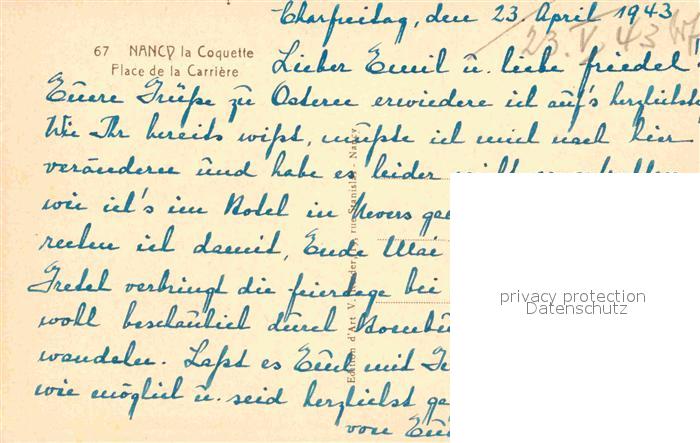 Charfreitag, den 23. April 1943
23. V. 43
67 NANCY la Coquette
Place de la Carrière
Lieber Emil u. liebe Friedel!
Euere Grüße zu Ostern erwiedere ich auf's herzlichste,
Wie Ihr bereits wißt, mußte ich mich nach hier
verändern und habe es leider nicht
wie ich's im Hotel in Nevers
rechne ich damit, Ende Mai
Gretel verbringt die Feiertage bei
wohl beschaulich durch
wandeln. Laßt es Euch mit
wie möglich u. seid herzlichst
von
Edition d'Art V. rue Stanislas - Nancy
privacy protection
Datenschutz